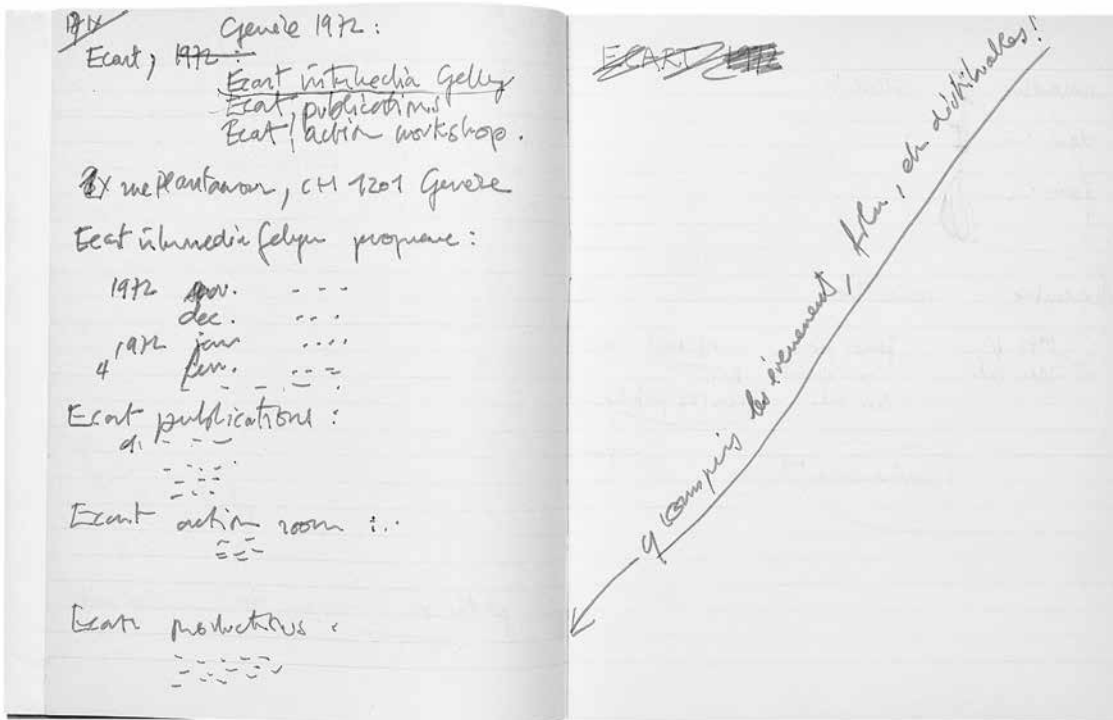 Genève 1972 :
Ecart, 1972 :
Ecart intermedia Gallery
Ecart publications
Ecart action workshop.
rue Plantamour, CH 1201 Genève
Ecart intermedia :
1972 nov. - - -
dec. - - -
1972 janv - - - -
4 fev. - - - -
Ecart publications :
Ecart action room :..
Ecart productions :
ECART 1972
y compris les évènements, film, etc !